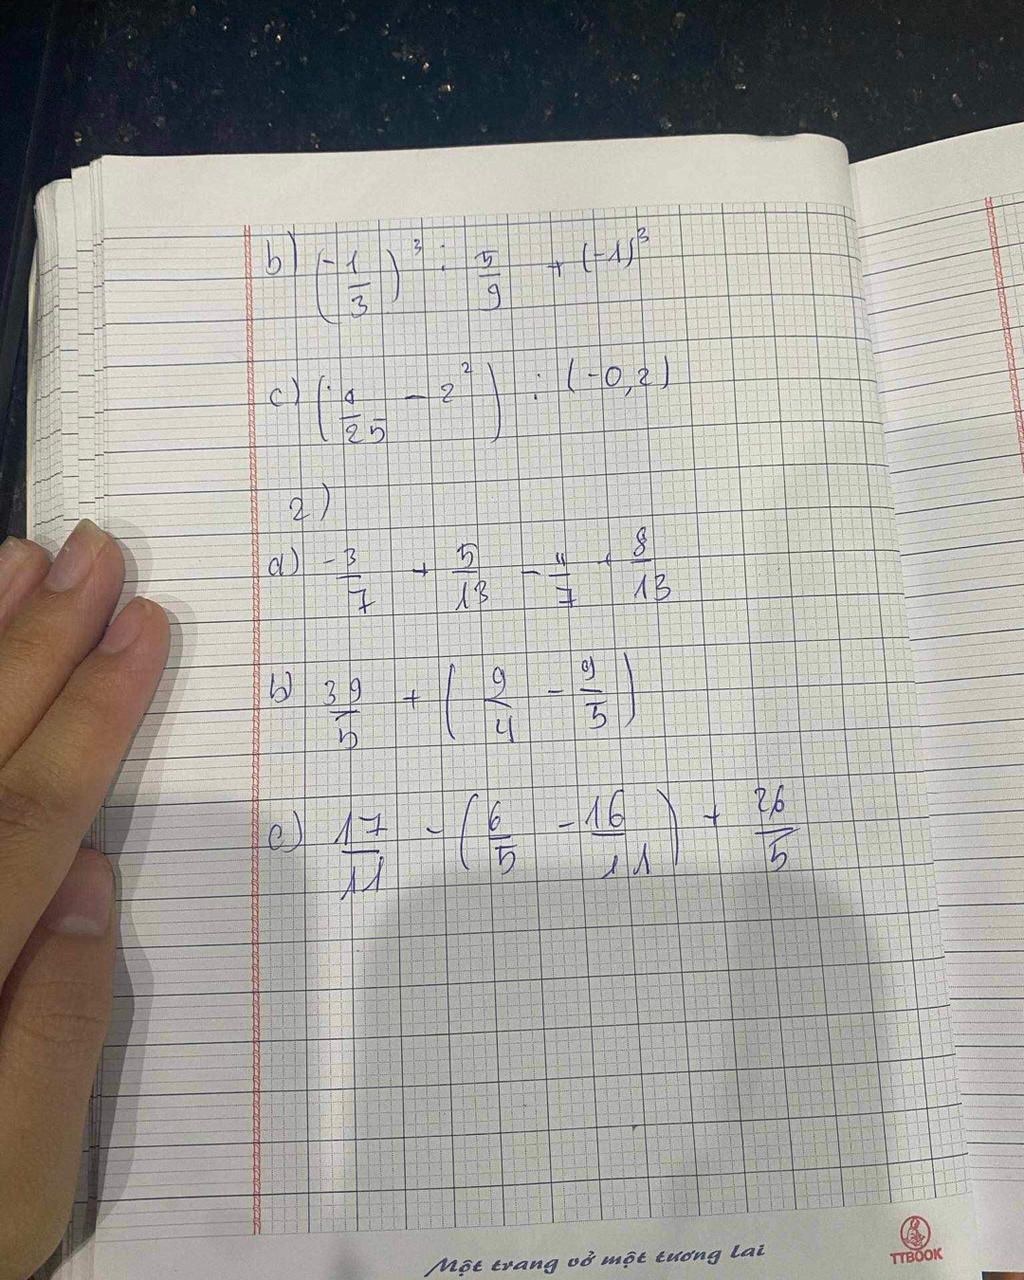 b) (-1/3)³ : 5/9 + (-1)³
c) ( /25 - 2²) : (-0,2)
2)
a) -3/7 + 5/13 - 4/7 + 8/13
b) 39/5 + (9/4 - 9/5)
c) 17/11 - (6/5 - 16/11) + 26/5
Một trang vở một tương lai
TTBOOK